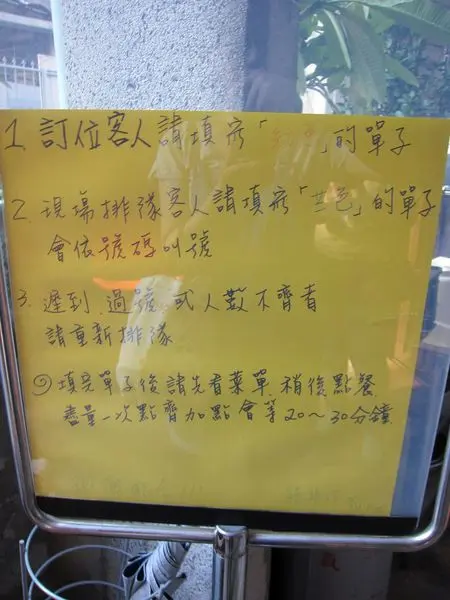 1. 訂位客人請填寫「 」的單子
2. 現場排隊客人請填寫「藍色」的單子
會依號碼叫號
3. 遲到.過號.或人數不齊者
請重新排隊
填完單子後請先看菜單.稍後點餐
盡量一次點齊加點會等20~30分鐘